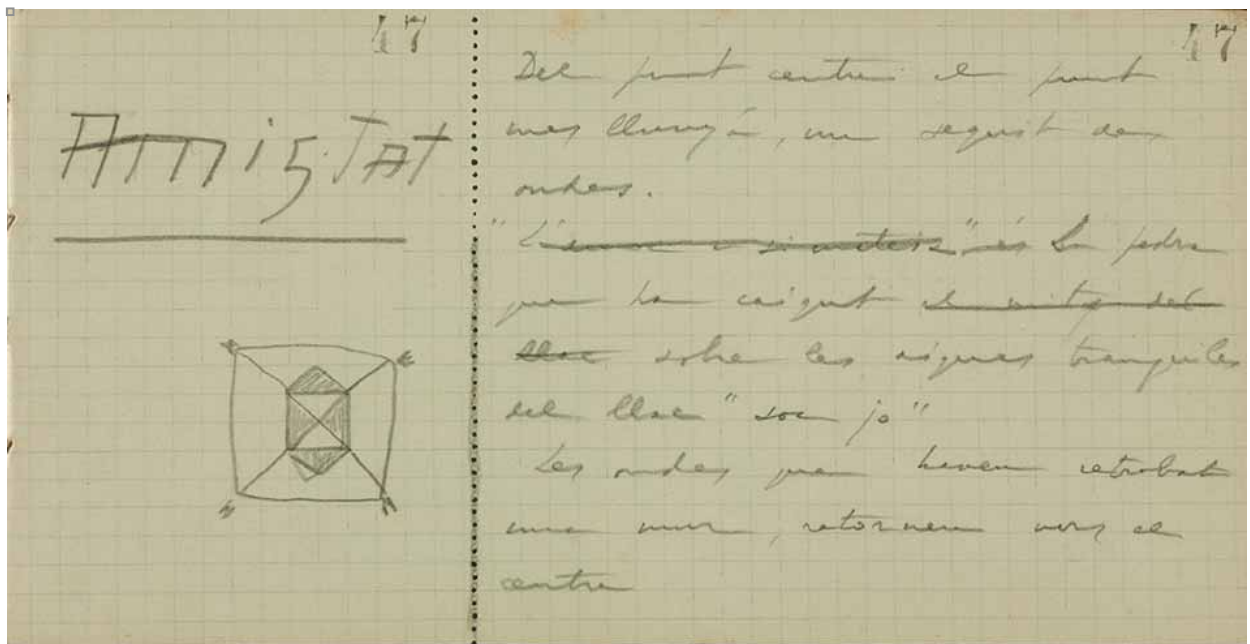 47
AmisTAT
47
Del punt centre al punt
mes llunyá, un seguit de
ondes.
"L' a si mateix" és La pedra
que ha caigut al mitg del
llac sobre les aigues tranquiles
del llac "soc jo"
Les ondes que haven retrobat
una mur, retornen vers el
centre